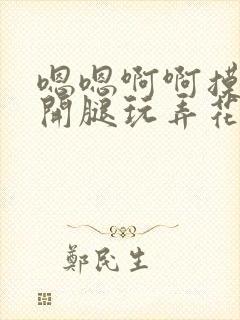 嗯嗯啊啊摸
開腿玩弄花
鄭民生